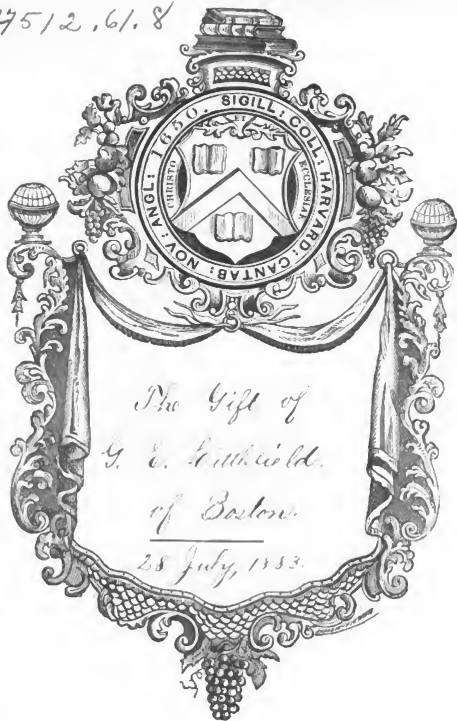 7512.61.8
SIGILL: COLL: HARVARD: CANTAB: NOV: ANGL: 1650.
CHRISTO ET ECCLESIAE
The Gift of
G. E.
of Boston.
28 July, 1883.